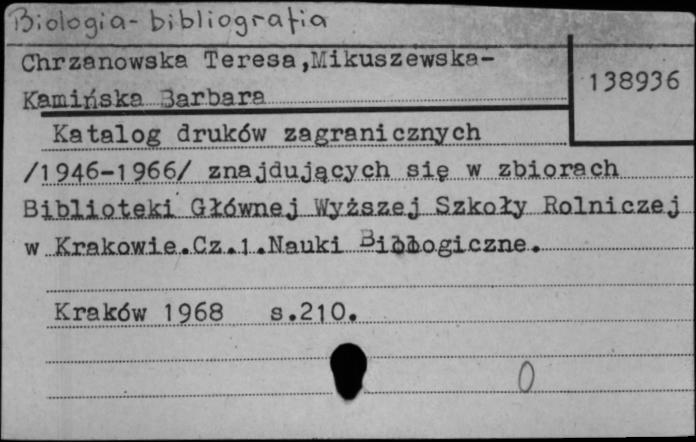 Biologia - bibliografia
Chrzanowska Teresa,Mikuszewska-
Kamińska Barbara
138936
Katalog druków zagranicznych
/1946-1966/ znajdujących się w zbiorach
Biblioteki Głównej Wyższej Szkoły Rolniczej
w Krakowie.Cz.1.Nauki Biologiczne.
Kraków 1968 s.210.
0